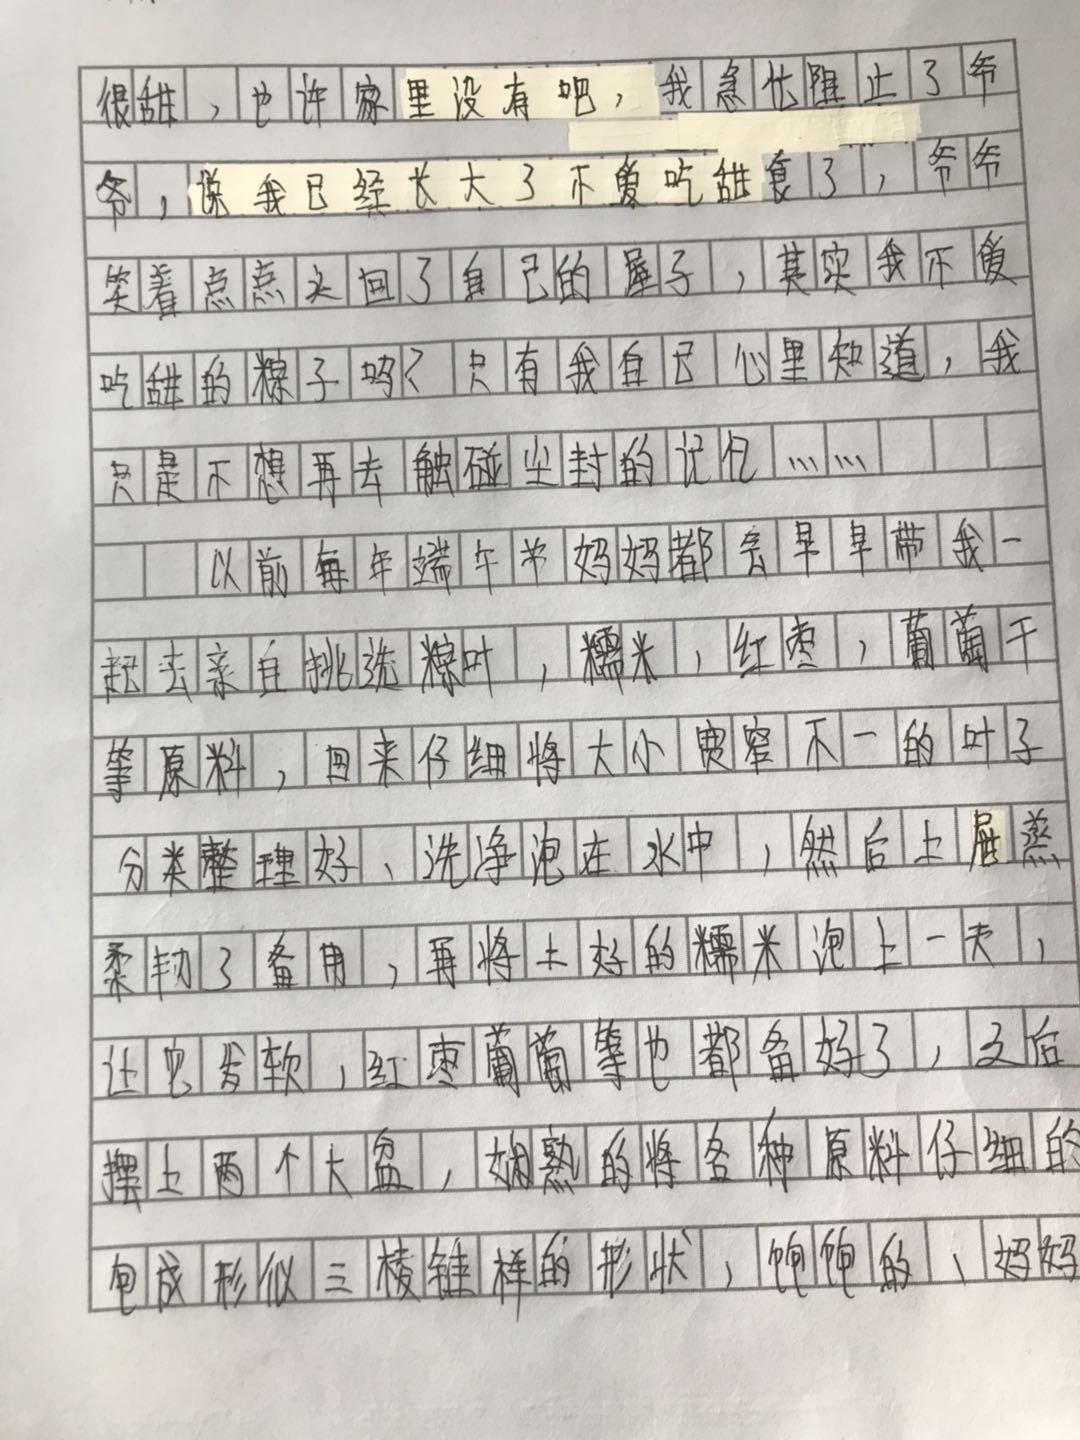 很甜，也许家里没有吧，我急忙阻止了爷
爷，说我已经长大了不爱吃甜食了，爷爷
笑着点点头回了自己的屋子，其实我不爱
吃甜的粽子吗？只有我自己心里知道，我
只是不想再去触碰尘封的记忆……
以前每年端午节妈妈都会早早带我一
起去亲自挑选粽叶，糯米，红枣，葡萄干
等原料，回来仔细将大小宽窄不一的叶子
分类整理好、洗净泡在水中，然后上屉蒸
柔韧了备用，再将上好的糯米泡上一天，
让它发软，红枣葡萄等也都备好了，之后
摆上两个大盆，娴熟的将各种原料仔细的
包成形似三棱锥样的形状，饱饱的、妈妈